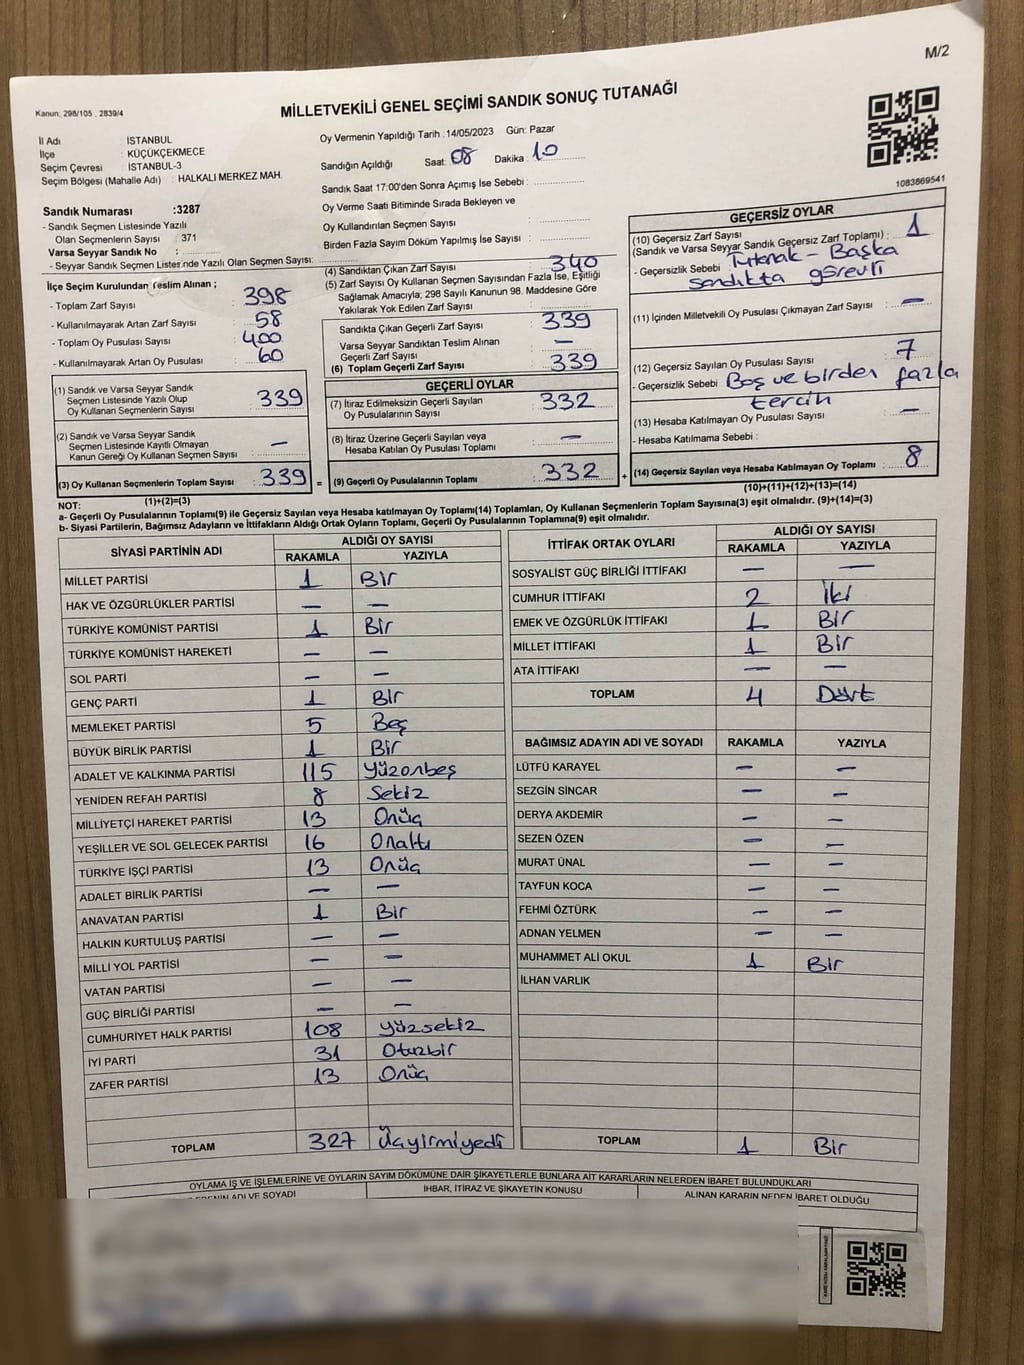 M/2
Kanun: 298/105 , 2839/4
MİLLETVEKİLİ GENEL SEÇİMİ SANDIK SONUÇ TUTANAĞI
İl Adı : İSTANBUL
İlçe : KÜÇÜKÇEKMECE
Seçim Çevresi : İSTANBUL-3
Seçim Bölgesi (Mahalle Adı) : HALKALI MERKEZ MAH.
Oy Vermenin Yapıldığı Tarih :14/05/2023 Gün: Pazar
Sandığın Açıldığı Saat: 08 Dakika : 10
Sandık Saat 17:00'den Sonra Açımış İse Sebebi :
Oy Verme Saati Bitiminde Sırada Bekleyen ve
Oy Kullandırılan Seçmen Sayısı :
Birden Fazla Sayım Döküm Yapılmış İse Sayısı :
1083869541
Sandık Numarası :3287
- Sandık Seçmen Listesinde Yazılı
Olan Seçmenlerin Sayısı : 371
Varsa Seyyar Sandık No :
- Seyyar Sandık Seçmen Listesinde Yazılı Olan Seçmen Sayısı:
İlçe Seçim Kurulundan Teslim Alınan ;
- Toplam Zarf Sayısı : 398
- Kullanılmayarak Artan Zarf Sayısı : 58
- Toplam Oy Pusulası Sayısı : 400
- Kullanılmayarak Artan Oy Pusulası : 60
(1) Sandık ve Varsa Seyyar Sandık
Seçmen Listesinde Yazılı Olup
Oy Kullanan Seçmenlerin Sayısı : 339
(2) Sandık ve Varsa Seyyar Sandık
Seçmen Listesinde Kayıtlı Olmayan
Kanun Gereği Oy Kullanan Seçmen Sayısı : —
(3) Oy Kullanan Seçmenlerin Toplam Sayısı : 339 =
(1)+(2)=(3)
(4) Sandıktan Çıkan Zarf Sayısı : 340
(5) Zarf Sayısı Oy Kullanan Seçmen Sayısından Fazla İse, Eşitliği
Sağlamak Amacıyla, 298 Sayılı Kanunun 98. Maddesine Göre
Yakılarak Yok Edilen Zarf Sayısı :
Sandıkta Çıkan Geçerli Zarf Sayısı : 339
Varsa Seyyar Sandıktan Teslim Alınan
Geçerli Zarf Sayısı : —
(6) Toplam Geçerli Zarf Sayısı : 339
GEÇERLİ OYLAR
(7) İtiraz Edilmeksizin Geçerli Sayılan
Oy Pusulalarının Sayısı : 332
(8) İtiraz Üzerine Geçerli Sayılan veya
Hesaba Katılan Oy Pusulası Toplamı : —
(9) Geçerli Oy Pusulalarının Toplamı : 332 +
GEÇERSİZ OYLAR
(10) Geçersiz Zarf Sayısı
(Sandık ve Varsa Seyyar Sandık Geçersiz Zarf Toplamı) : 1
- Geçersizlik Sebebi : Tutanak - Başka
sandıkta görevli
(11) İçinden Milletvekili Oy Pusulası Çıkmayan Zarf Sayısı : —
(12) Geçersiz Sayılan Oy Pusulası Sayısı : 7
- Geçersizlik Sebebi : Boş ve birden fazla
tercih
(13) Hesaba Katılmayan Oy Pusulası Sayısı : —
- Hesaba Katılmama Sebebi :
(14) Geçersiz Sayılan veya Hesaba Katılmayan Oy Toplamı : 8
(10)+(11)+(12)+(13)=(14)
NOT:
a- Geçerli Oy Pusulalarının Toplamı(9) ile Geçersiz Sayılan veya Hesaba katılmayan Oy Toplamı(14) Toplamları, Oy Kullanan Seçmenlerin Toplam Sayısına(3) eşit olmalıdır. (9)+(14)=(3)
b- Siyasi Partilerin, Bağımsız Adayların ve İttifakların Aldığı Ortak Oyların Toplamı, Geçerli Oy Pusulalarının Toplamına(9) eşit olmalıdır.
SİYASİ PARTİNİN ADI ALDIĞI OY SAYISI
RAKAMLA YAZIYLA
MİLLET PARTİSİ 1 Bir
HAK VE ÖZGÜRLÜKLER PARTİSİ — —
TÜRKİYE KOMÜNİST PARTİSİ 1 Bir
TÜRKİYE KOMÜNİST HAREKETİ — —
SOL PARTİ — —
GENÇ PARTİ 1 Bir
MEMLEKET PARTİSİ 5 Beş
BÜYÜK BİRLİK PARTİSİ 1 Bir
ADALET VE KALKINMA PARTİSİ 115 Yüzonbeş
YENİDEN REFAH PARTİSİ 8 Sekiz
MİLLİYETÇİ HAREKET PARTİSİ 13 Onüç
YEŞİLLER VE SOL GELECEK PARTİSİ 16 Onaltı
TÜRKİYE İŞÇİ PARTİSİ 13 Onüç
ADALET BİRLİK PARTİSİ — —
ANAVATAN PARTİSİ 1 Bir
HALKIN KURTULUŞ PARTİSİ — —
MİLLİ YOL PARTİSİ — —
VATAN PARTİSİ — —
GÜÇ BİRLİĞİ PARTİSİ — —
CUMHURİYET HALK PARTİSİ 108 Yüzsekiz
İYİ PARTİ 31 Otuzbir
ZAFER PARTİSİ 13 Onüç
TOPLAM 327 Üçyirmiyedi
İTTİFAK ORTAK OYLARI ALDIĞI OY SAYISI
RAKAMLA YAZIYLA
SOSYALİST GÜÇ BİRLİĞİ İTTİFAKI — —
CUMHUR İTTİFAKI 2 İki
EMEK VE ÖZGÜRLÜK İTTİFAKI 1 Bir
MİLLET İTTİFAKI 1 Bir
ATA İTTİFAKI — —
TOPLAM 4 Dört
BAĞIMSIZ ADAYIN ADI VE SOYADI RAKAMLA YAZIYLA
LÜTFÜ KARAYEL — —
SEZGİN SİNCAR — —
DERYA AKDEMİR — —
SEZEN ÖZEN — —
MURAT ÜNAL — —
TAYFUN KOCA — —
FEHMİ ÖZTÜRK — —
ADNAN YELMEN — —
MUHAMMET ALİ OKUL 1 Bir
İLHAN VARLIK
TOPLAM 1 Bir
OYLAMA İŞ VE İŞLEMLERİNE VE OYLARIN SAYIM DÖKÜMÜNE DAİR ŞİKAYETLERLE BUNLARA AİT KARARLARIN NELERDEN İBARET BULUNDUKLARI
ADI VE SOYADI İHBAR, İTİRAZ VE ŞİKAYETİN KONUSU ALINAN KARARIN NEDEN İBARET OLDUĞU